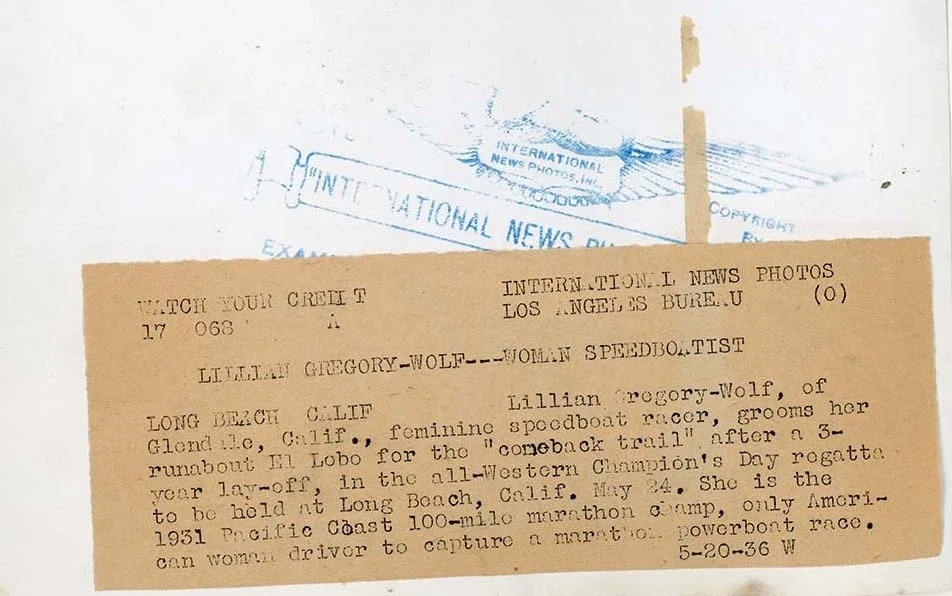 INTERNATIONAL
NEWS PHOTOS, INC.
INTERNATIONAL NEWS
COPYRIGHT
BY
WATCH YOUR CREDIT
INTERNATIONAL NEWS PHOTOS
17 068 A
LOS ANGELES BUREAU (O)
LILLIAN GREGORY-WOLF---WOMAN SPEEDBOATIST
LONG BEACH CALIF Lillian Gregory-Wolf, of
Glendale, Calif., feminine speedboat racer, grooms her
runabout El Lobo for the "comeback trail" after a 3-
year lay-off, in the all-Western Champion's Day regatta
to be held at Long Beach, Calif. May 24. She is the
1931 Pacific Coast 100-mile marathon champ, only Ameri-
can woman driver to capture a marathon powerboat race.
5-20-36 W